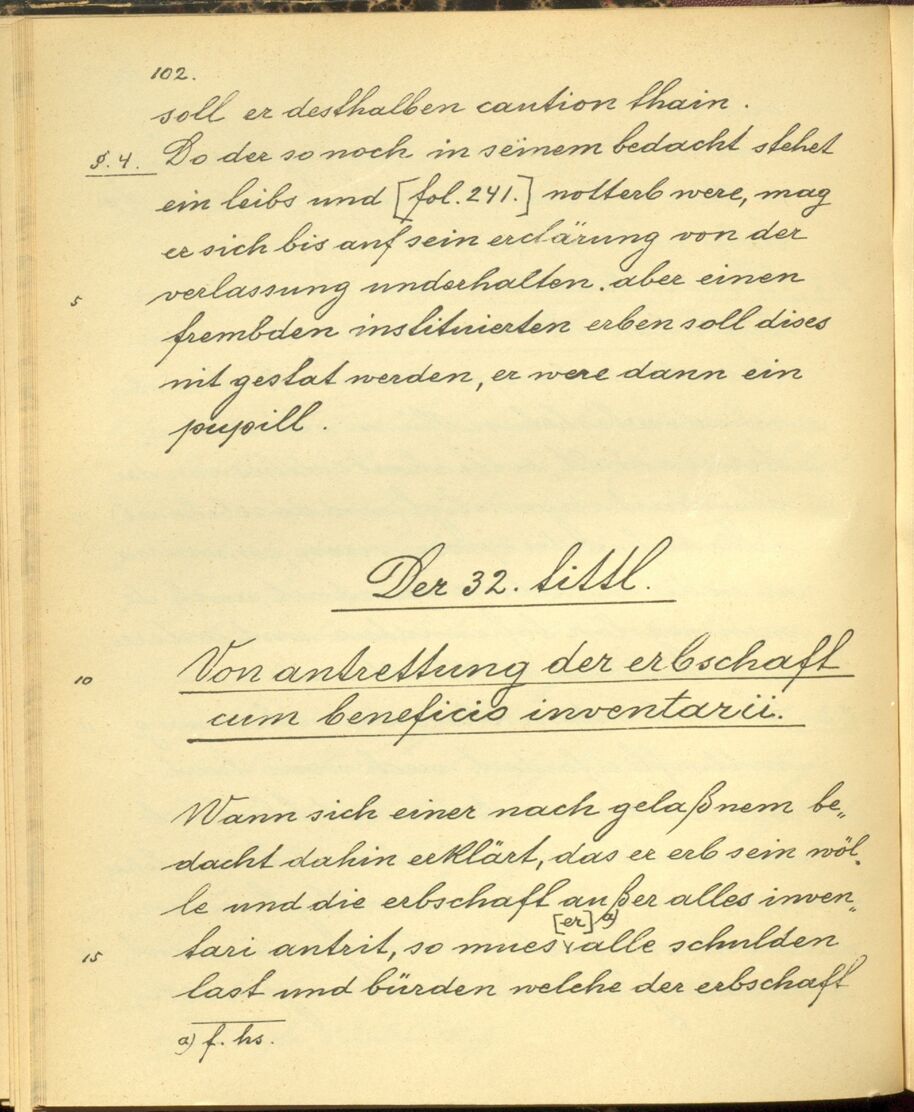 102.
soll er desthalben caution thain.
§.4. Do der so noch in seinem bedacht stehet
ein leibs und [fol. 241.] notterb were, mag
er sich bis auf sein erclärung von der
5 verlassung underhalten. aber einen
frembden instituierten erben soll dises
nit gestat werden, er were dann ein
pupill.
Der 32. tittl.
10 Von antrettung der erbschaft
cum beneficio inventarii.
Wann sich einer nach gelaßnem be„
dacht dahin erklärt, das er erb sein wöl„
le und die erbschaft außer alles inven„
[er] a)
15 tari antrit, so mues alle schulden
last und bürden welche der erbschaft
a) f. hs.